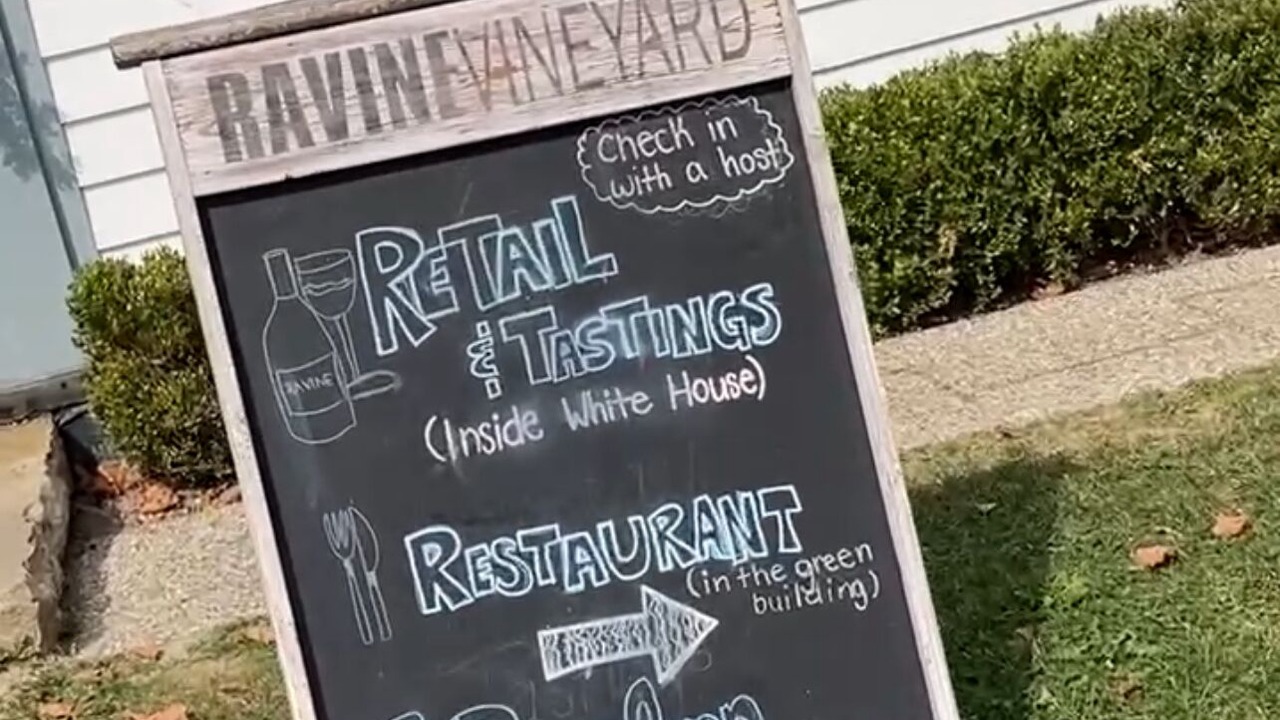 RAVINEVINEYARD
Check in
with a host
RETAIL
& TASTINGS
(Inside White House)
RAVINE
RESTAURANT
(in the green
building)